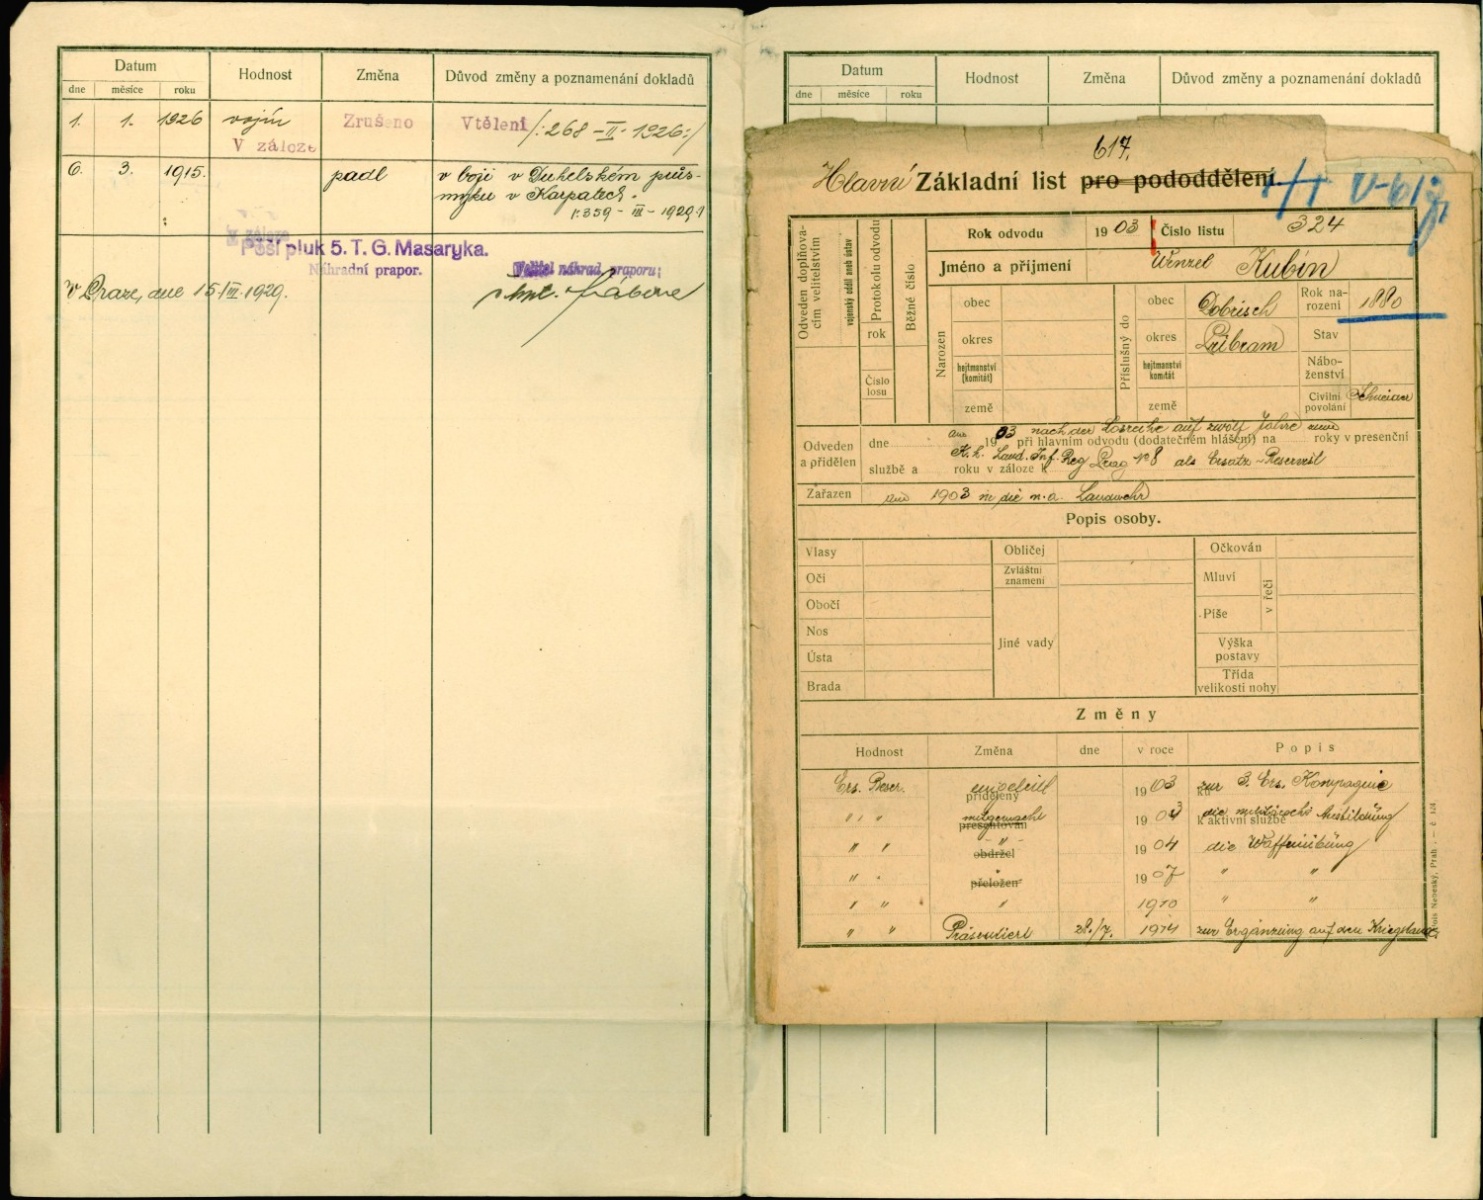 Datum Hodnost Změna Důvod změny a poznamenání dokladů
dne měsíce roku
1. 1. 1926 vojín Zrušeno Vtělení /:268-II-1926:/
V záloze
6. 3. 1915. padl v boji v Duhelském průs-
myku v Karpatech.
V záloze
Pěší pluk 5. T. G. Masaryka.
Náhradní prapor.
náhrad. praporu:
V Praze, dne 15/III. 1929.
Datum Hodnost Změna Důvod změny a poznamenání dokladů
dne měsíce roku
617.
Hlavní Základní list pro pododdělení
V-617
Odveden doplňova-
cím velitelstvím
vojenský oddíl aneb ústav
Protokolu odvodu
rok
Číslo
losu
Běžné číslo
Rok odvodu 1903 Číslo listu 324
Jméno a příjmení Wenzel Kubín
Narozen
obec
okres
hejtmanství
(komitát)
země
Příslušný do
obec Dobrisch
okres Přibram
hejtmanství
komitát
země
Rok na-
rození 1880
Stav
Nábo-
ženství
Civilní
povolání
Odveden
a přidělen
nach der Losreihe auf zwölf Jahre zum
dne 1903 při hlavním odvodu (dodatečném hlášení) na roky v presenční
K. k. Land. Inf. Reg Prag No 8 als Ersatz-Reservist
službě a roku v záloze k
Zařazen 1903 in die n. a. Landwehr
Popis osoby.
Vlasy Obličej Očkován
Oči Zvláštní
znamení Mluví
Obočí Píše v řeči
Nos Jiné vady Výška
postavy
Ústa
Brada Třída
velikosti nohy
Změny
Hodnost Změna dne v roce Popis
Ers. Reser. eingeteilt 1903 zur 3. Ers. Kompagnie
přidělený ku
" " mitgemacht 1903 die militärische Ausbildung
presentován k aktivní službě
" " " 1904 die Waffenübung
obdržel
" " " 1907 " "
přeložen
" " " 1910 " "
" " Präsentiert 28./7. 1914 zur Ergänzung auf den Kriegsstand